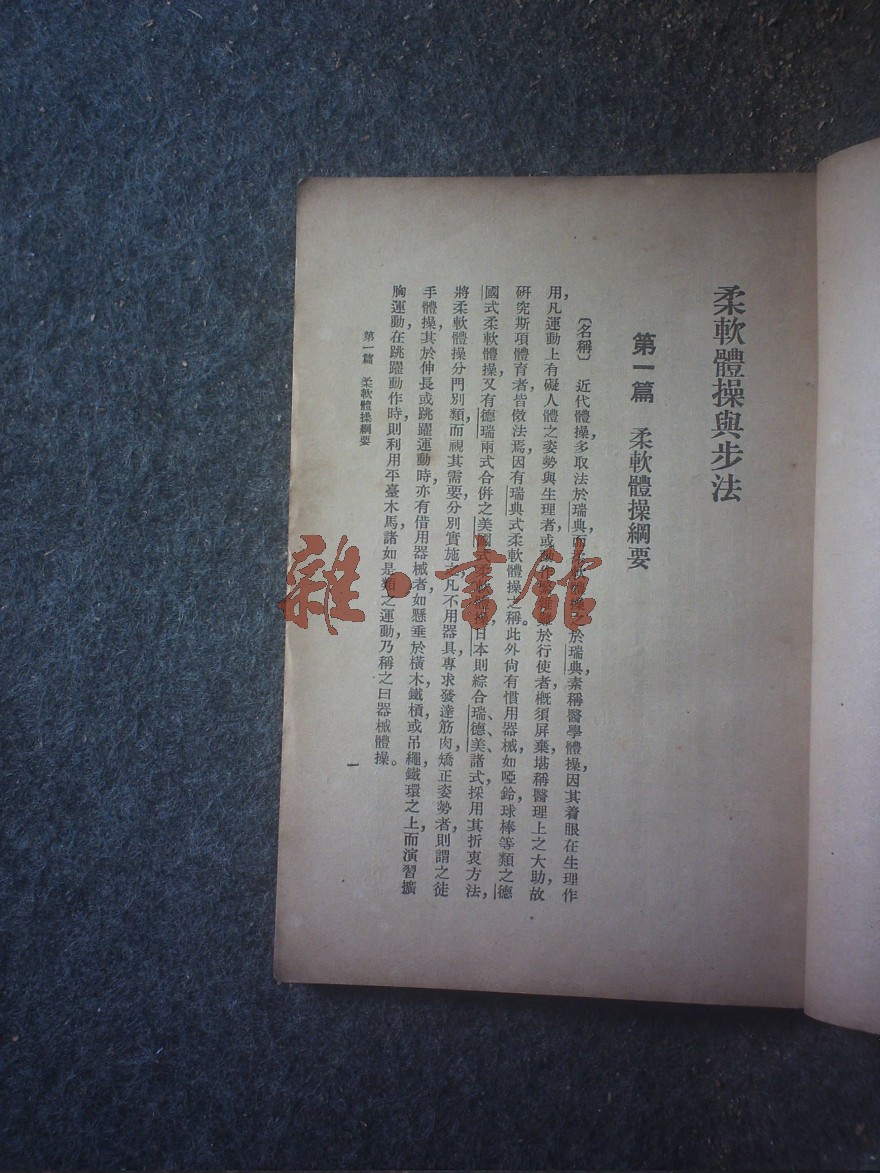 柔軟體操與步法
第一篇 柔軟體操綱要
〔名稱〕 近代體操，多取法於瑞典，而軟體操之於瑞典，素稱醫學體操，因其着眼在生理作
用，凡運動上有礙人體之姿勢與生理者，或於行使者，概須屏棄，堪稱醫理上之大助，故
研究斯項體育者，皆傚法焉，因有瑞典式柔軟體操之稱。此外尙有慣用器械，如啞鈴，球棒等類之德
國式柔軟體操，又有德瑞兩式合倂之美國式柔軟體操，日本則綜合瑞、德、美、諸式，採用其折衷方法，
將柔軟體操分門別類，而視其需要，分別實施之，凡不用器具，專求發達筋肉，矯正姿勢者，則謂之徒
手體操，其於伸長或跳躍運動時，亦有借用器械者，如懸垂於橫木，鐵槓，或吊繩，鐵環之上，而演習擴
胸運動，在跳躍動作時，則利用平臺木馬，諸如是類之運動，乃稱之曰器械體操。
第一篇 柔軟體操綱要
一
雜·書館